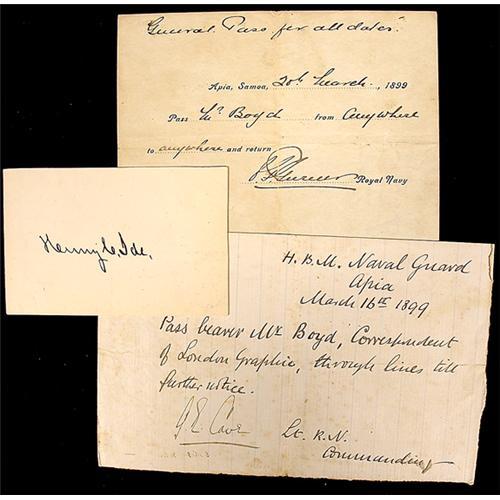 General Pass for all dates.
Apia, Samoa, 20th March, 1899
Pass Mr Boyd from Anywhere
to anywhere and return
Royal Navy
Henry C. Ide,
H. B. M. Naval Guard
Apia
March 16th 1899
Pass bearer Mr Boyd, Correspondent
of London Graphic, through lines till
further notice.
Lt. R.N.
Commanding